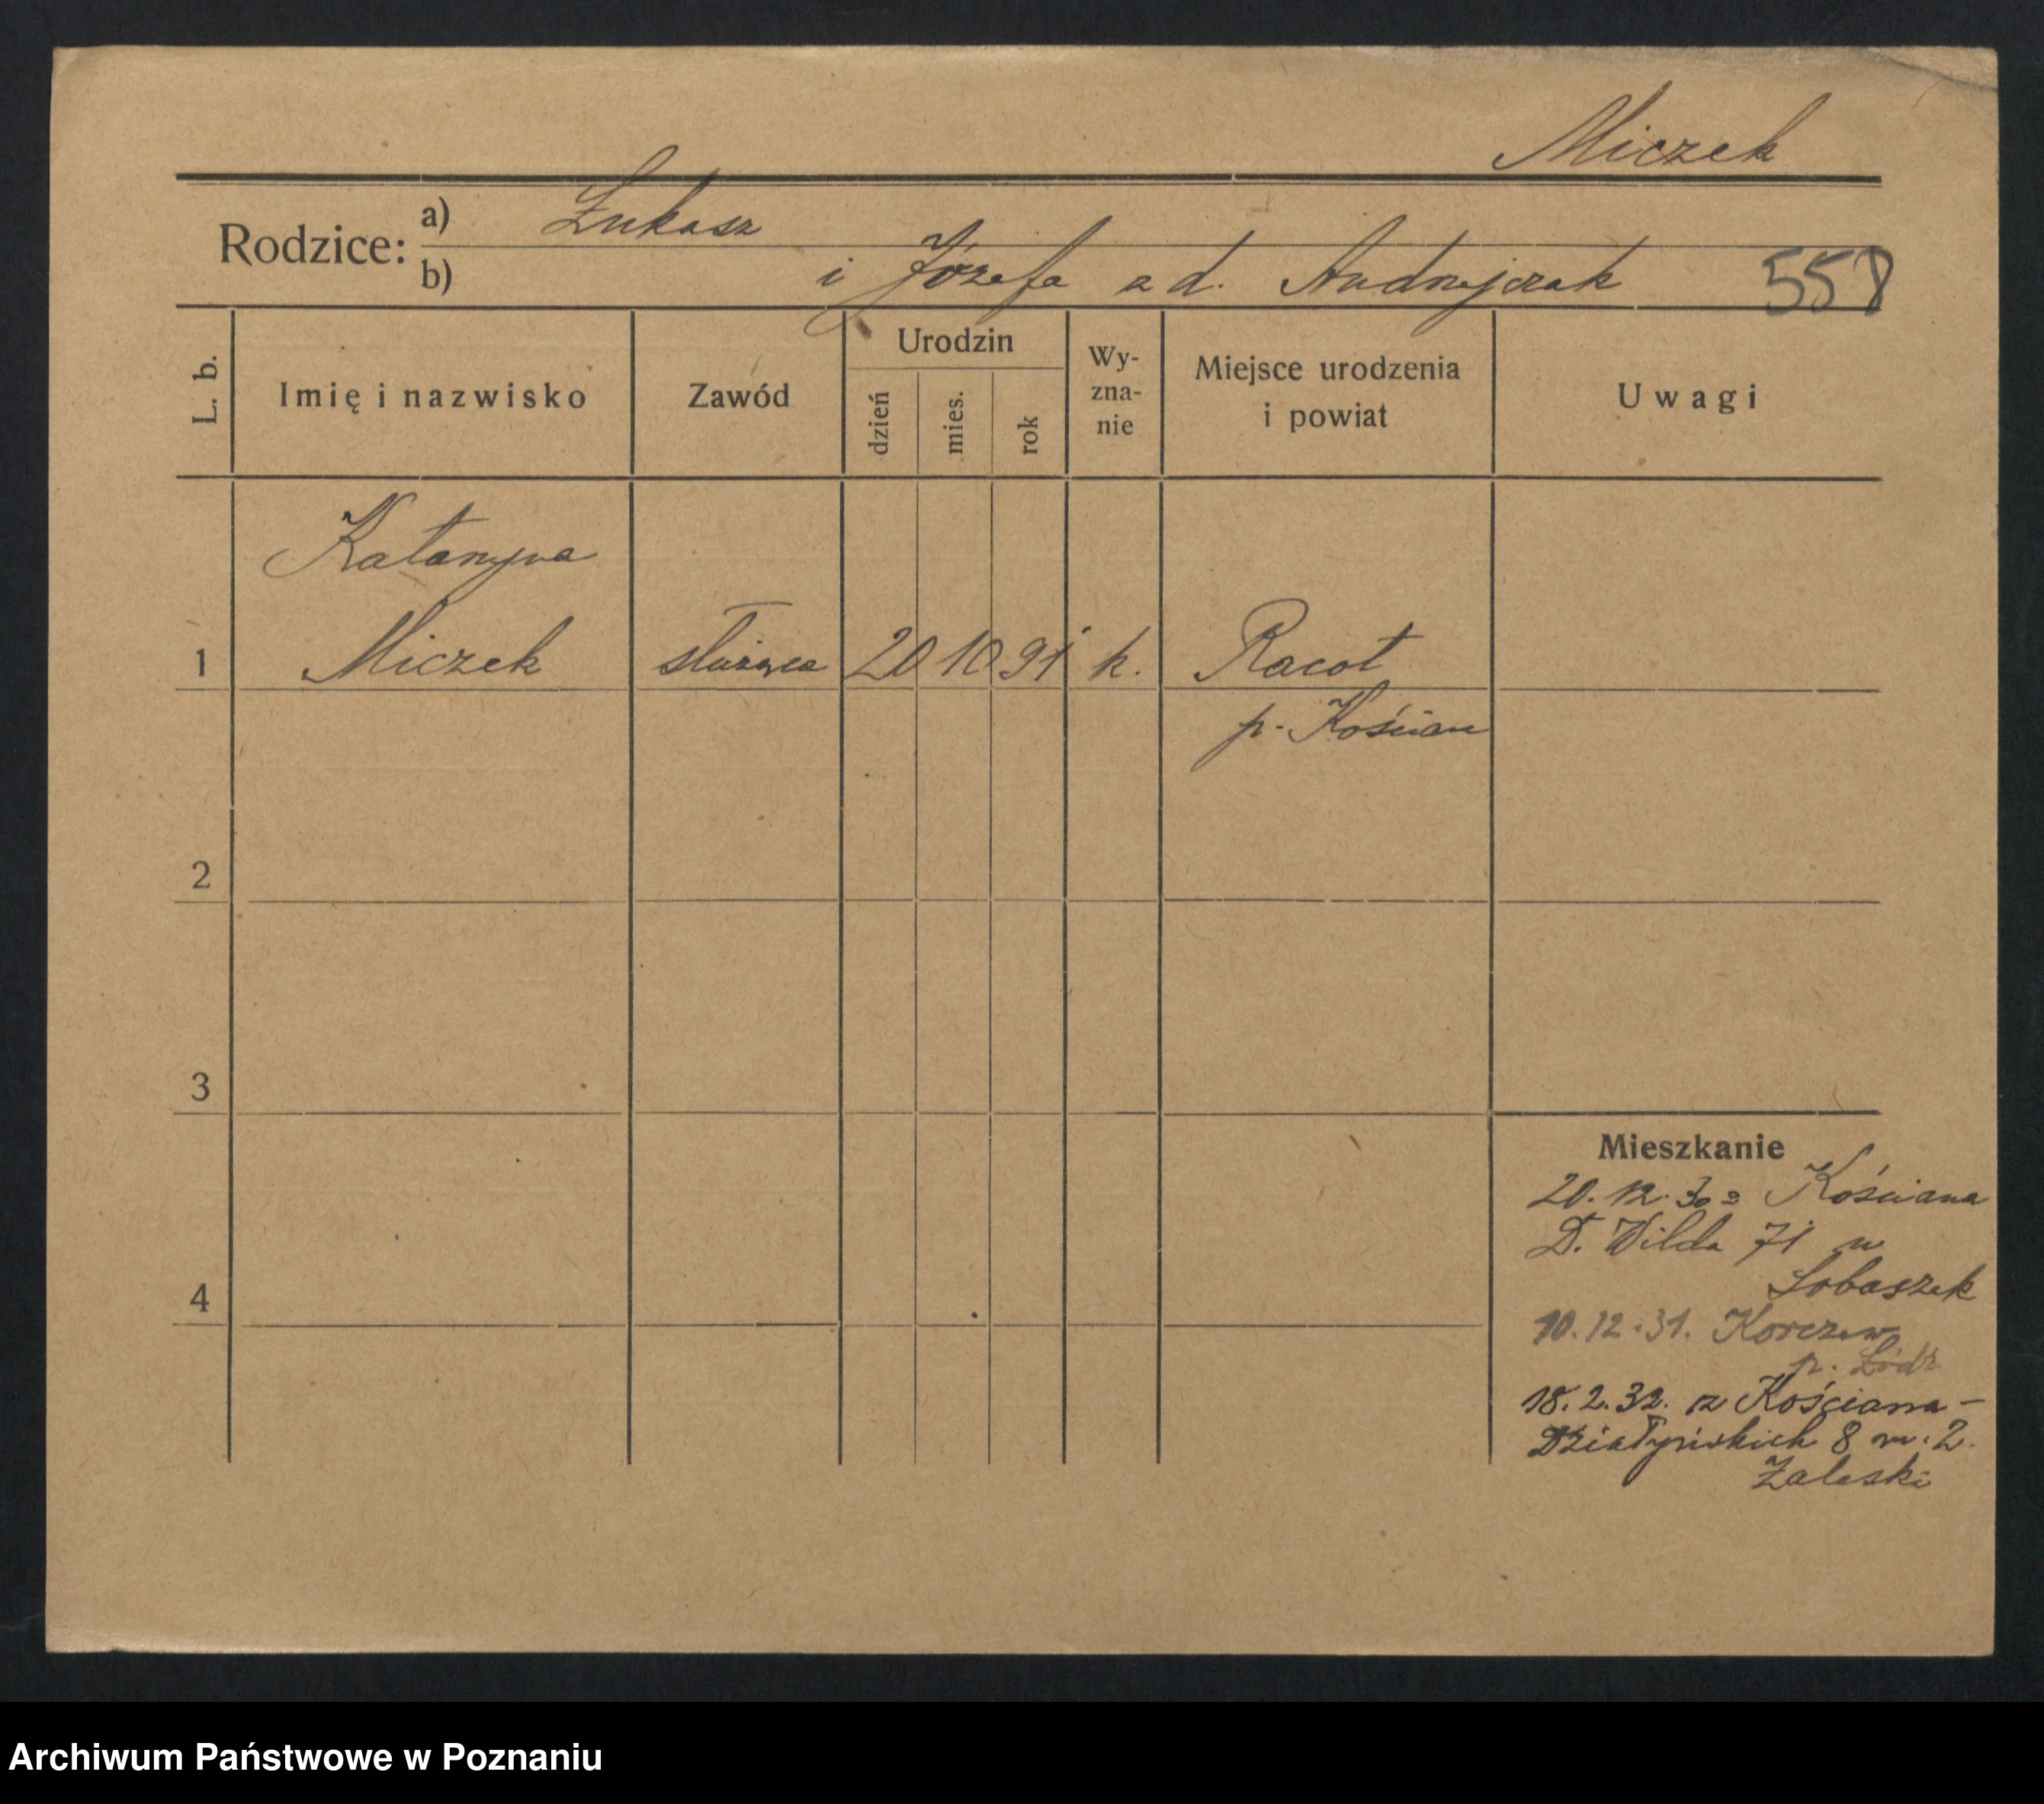 Miczek
Rodzice: a) Łukasz
b) i Józefa z d. Andrzejczak
558
L. b. Imię i nazwisko Zawód Urodzin dzień mies. rok Wy-zna-nie Miejsce urodzenia i powiat Uwagi
Katarzyna
1 Miczek służąca 20 10 91 k. Racot
p. Kościan
2
3
Mieszkanie
20.12.30 z Kościana
D. Wilda 71 u
Łobaszek
4
10.12.31. Korczew
p. Łódź
18.2.32. z Kościana -
Działyńskich 8 m. 2.
Zaleski
Archiwum Państwowe w Poznaniu